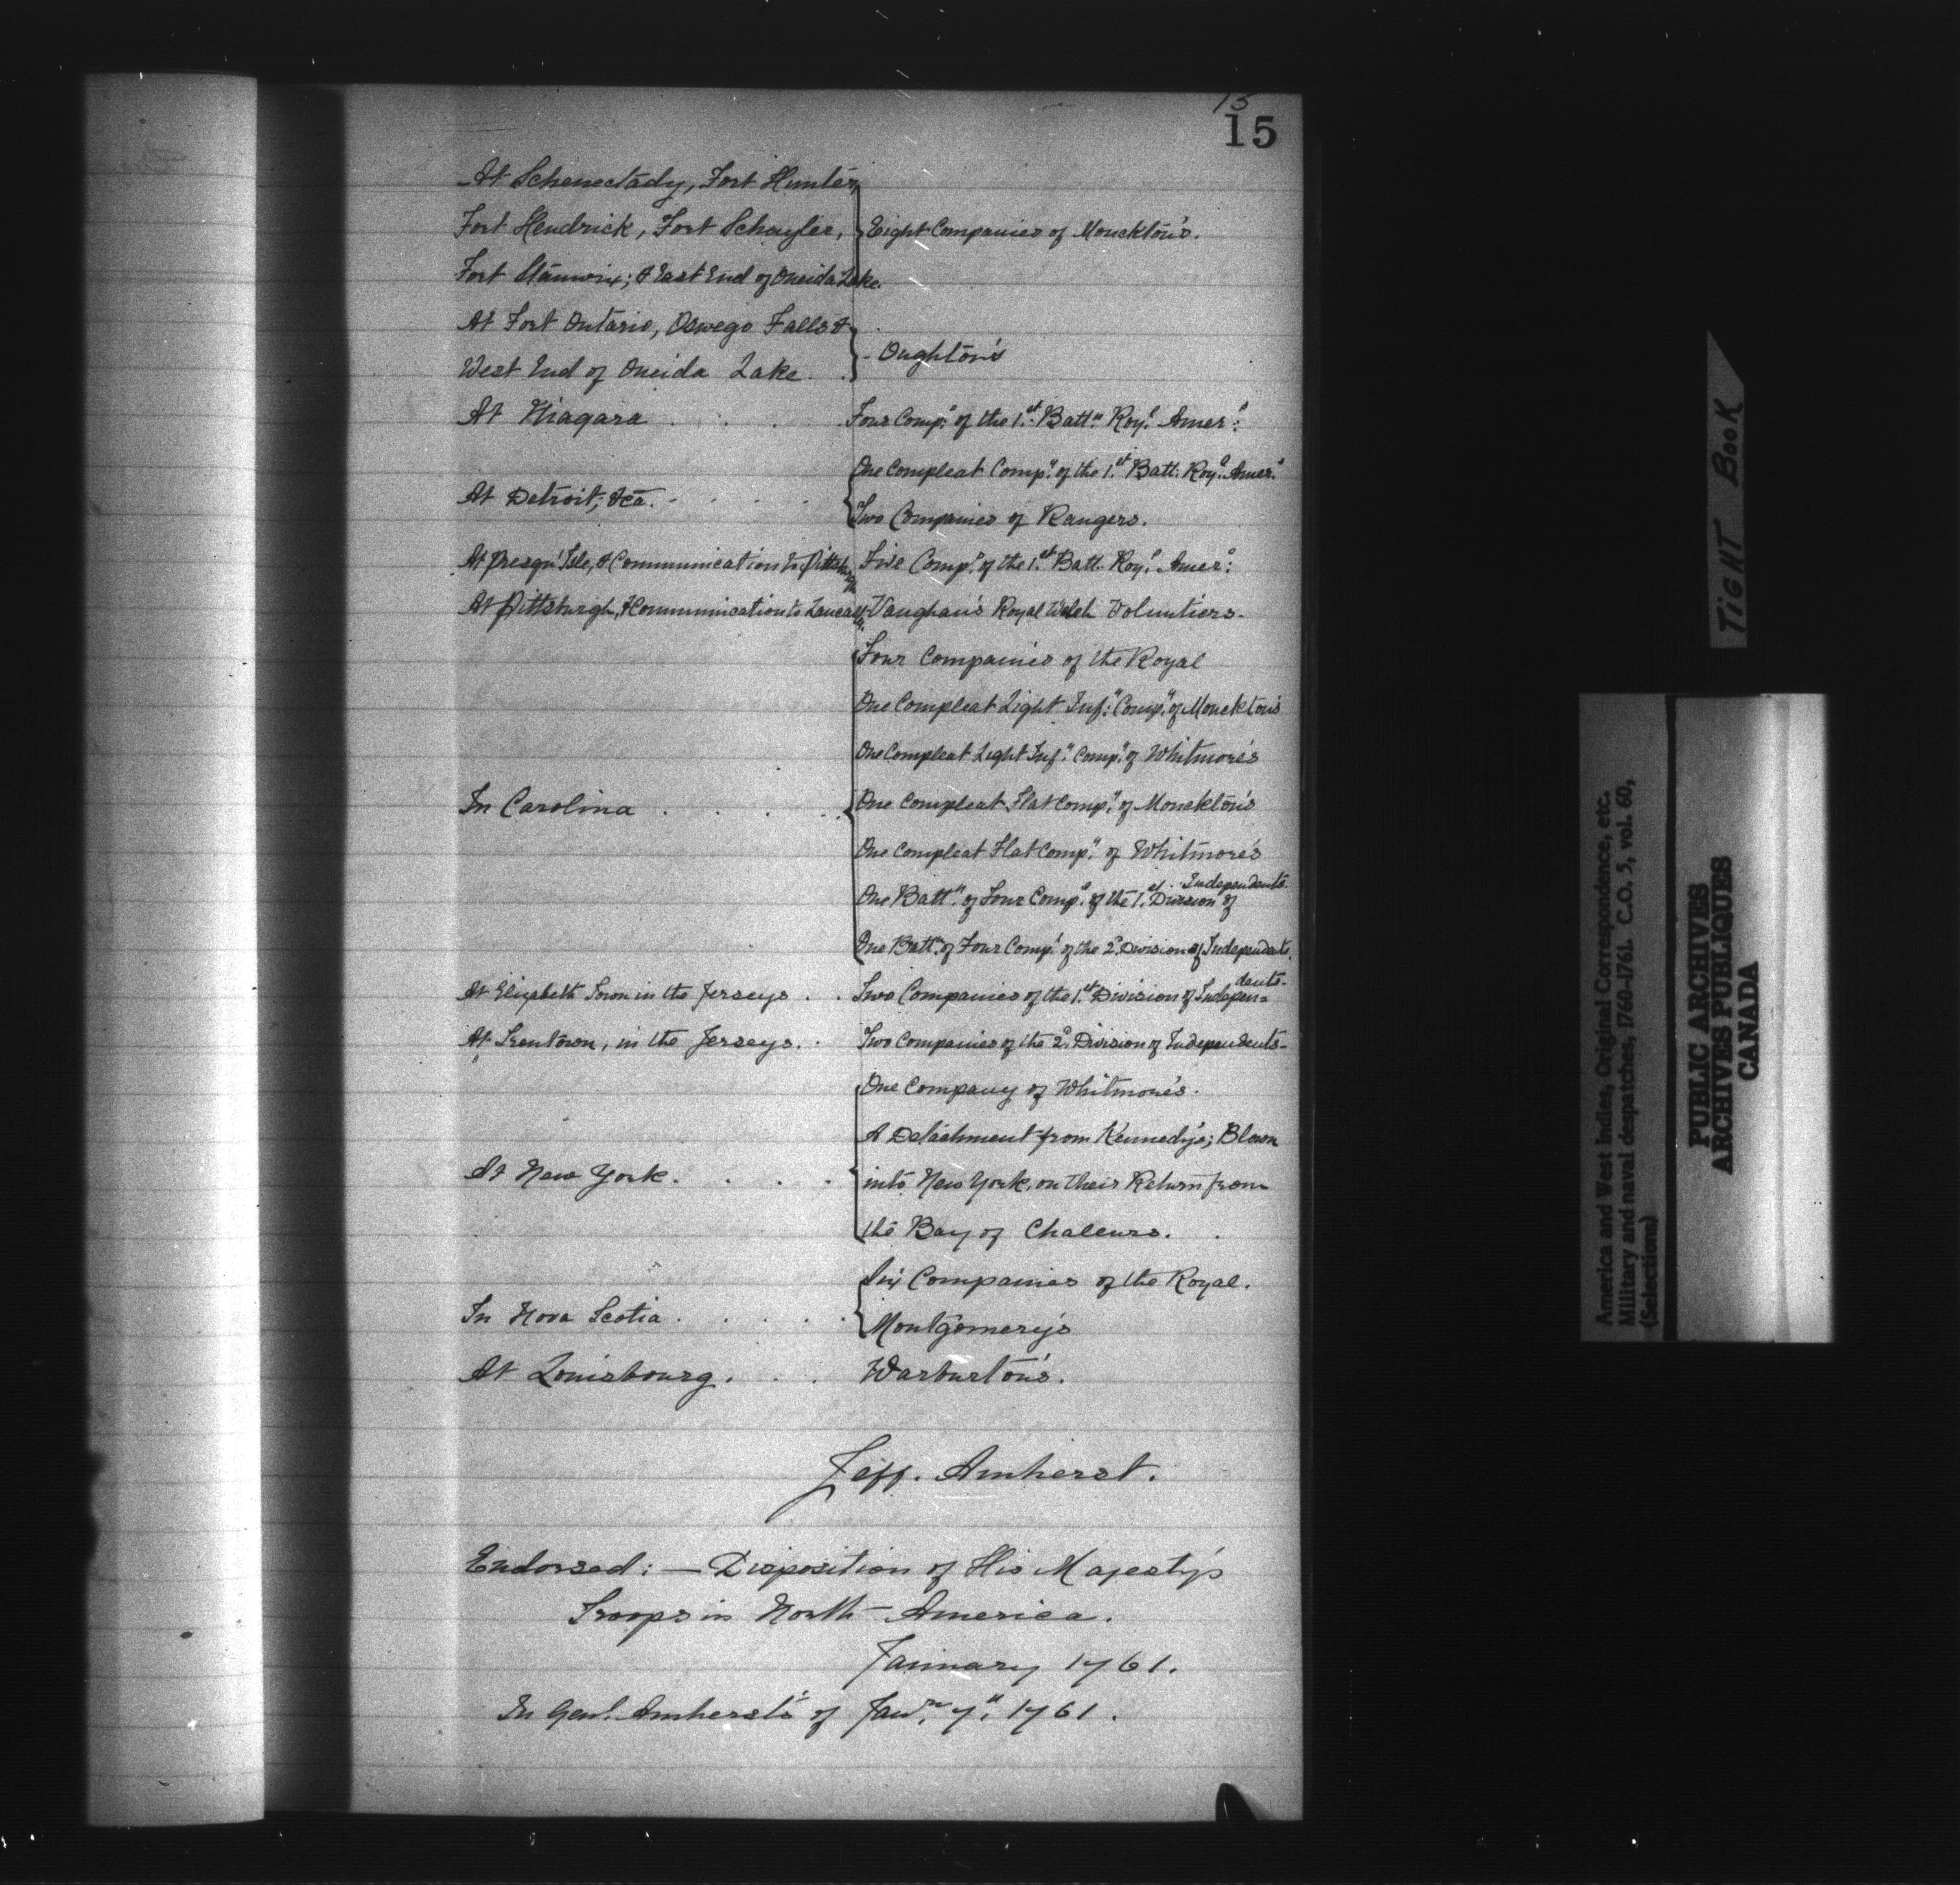 13
15
At Schenectady, Fort Hunter,
Fort Hendrick, Fort Schuyler,
Eight Companies of Monckton's.
Fort Stanwix; & East End of Oneida Lake.
At Fort Ontario, Oswego Falls &
West End of Oneida Lake. .
- Oughton's
At Niagara . . . .
Four Comps. of the 1st. Battn. Royl. Amers.
At Detroit, &ca. - . . .
One Compleat Compy. of the 1st. Batt: Royl. Amers.
Two Companies of Rangers.
At Presqu'Isle, & Communication to Pittsburgh
Five Comps. of the 1st. Batt. Royl. Amers.
At Pittsburgh, & Communication to Lancaster.
Vaughan's Royal Welch Voluntiers.
In Carolina . . . . .
Four Companies of the Royal
One Compleat Light Infy. Compy. of Monckton's
One Compleat Light Infy. Compy. of Whitmore's
One Compleat Flat Compy. of Monckton's
One Compleat Flat Compy. of Whitmore's
One Battn. of Four Comps. of the 1st. Division of Independents.
One Battn. of Four Comps. of the 2d. Division of Independents.
At Elizabeth Town in the Jerseys . .
Two Companies of the 1st. Division of Indepen=dents.
At Trentown, in the Jerseys. .
Two Companies of the 2d. Division of Independents-
At New York. . . . .
One Company of Whitmore's.
A Detachment from Kennedy's; Blown
into New York, on their Return from
the Bay of Chaleurs. .
In Nova Scotia . . . . .
Six Companies of the Royal.
Montgomery's
At Louisbourg. . .
Warburton's.
Jeff. Amherst.
Endorsed: — Disposition of His Majesty's
Troops in North-America.
January 1761.
In Genl. Amherst's of Janry. 7th. 1761.
TIGHT BOOK
America and West Indies, Original Correspondence, etc.
Military and naval despatches, 1760-1761. C.O. 5, vol. 60,
(Selections)
PUBLIC ARCHIVES
ARCHIVES PUBLIQUES
CANADA